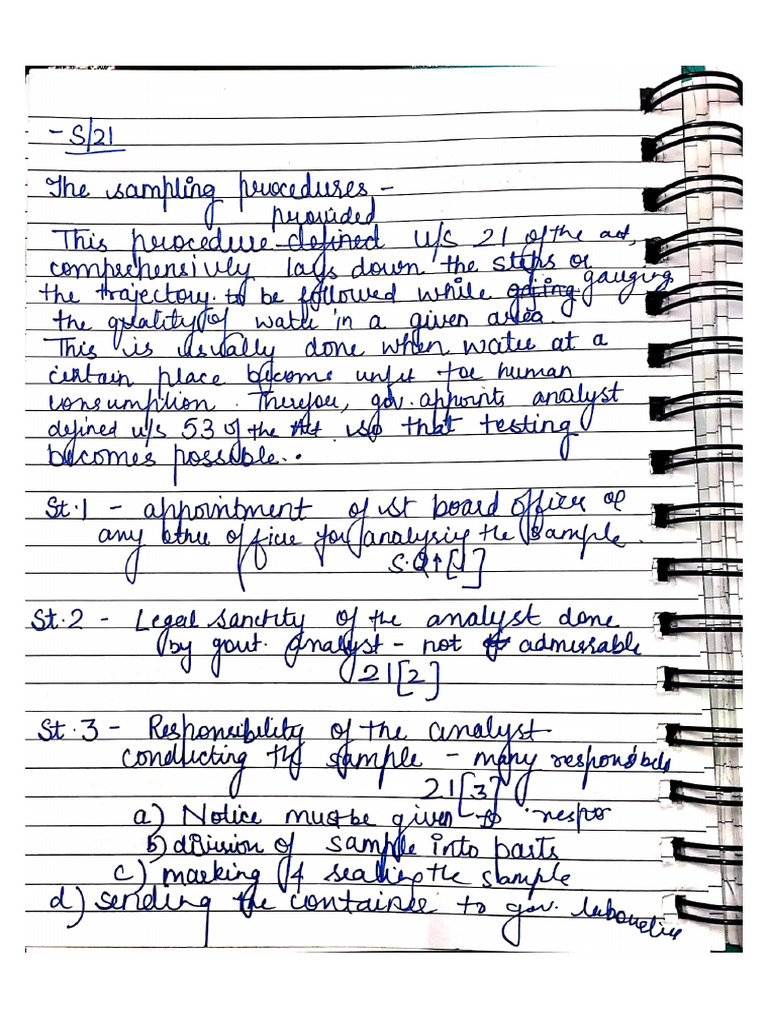 - S/21
The sampling procedures -
provided
This procedure defined u/s 21 of the act,
comprehensivly lays down the steps or
the trajectory to be followed while going gauging
the quality of water in a given area.
This is usually done when water at a
certain place become unfit for human
consumption. Therefore, gov. appoints analyst
defined u/s 53 of the Act so that testing
becomes possible.
St.1 - appointment of st board officer or
any other officer for analysing the sample.
S.21[1]
St.2 - Legal sanctity of the analyst done
by govt. analyst - not admissable
21[2]
St.3 - Responsibility of the analyst
conducting the sample - many
21[3]
a) Notice must be given to respo
b) division of sample into parts
c) marking & sealing the sample
d) sending the container to gov.